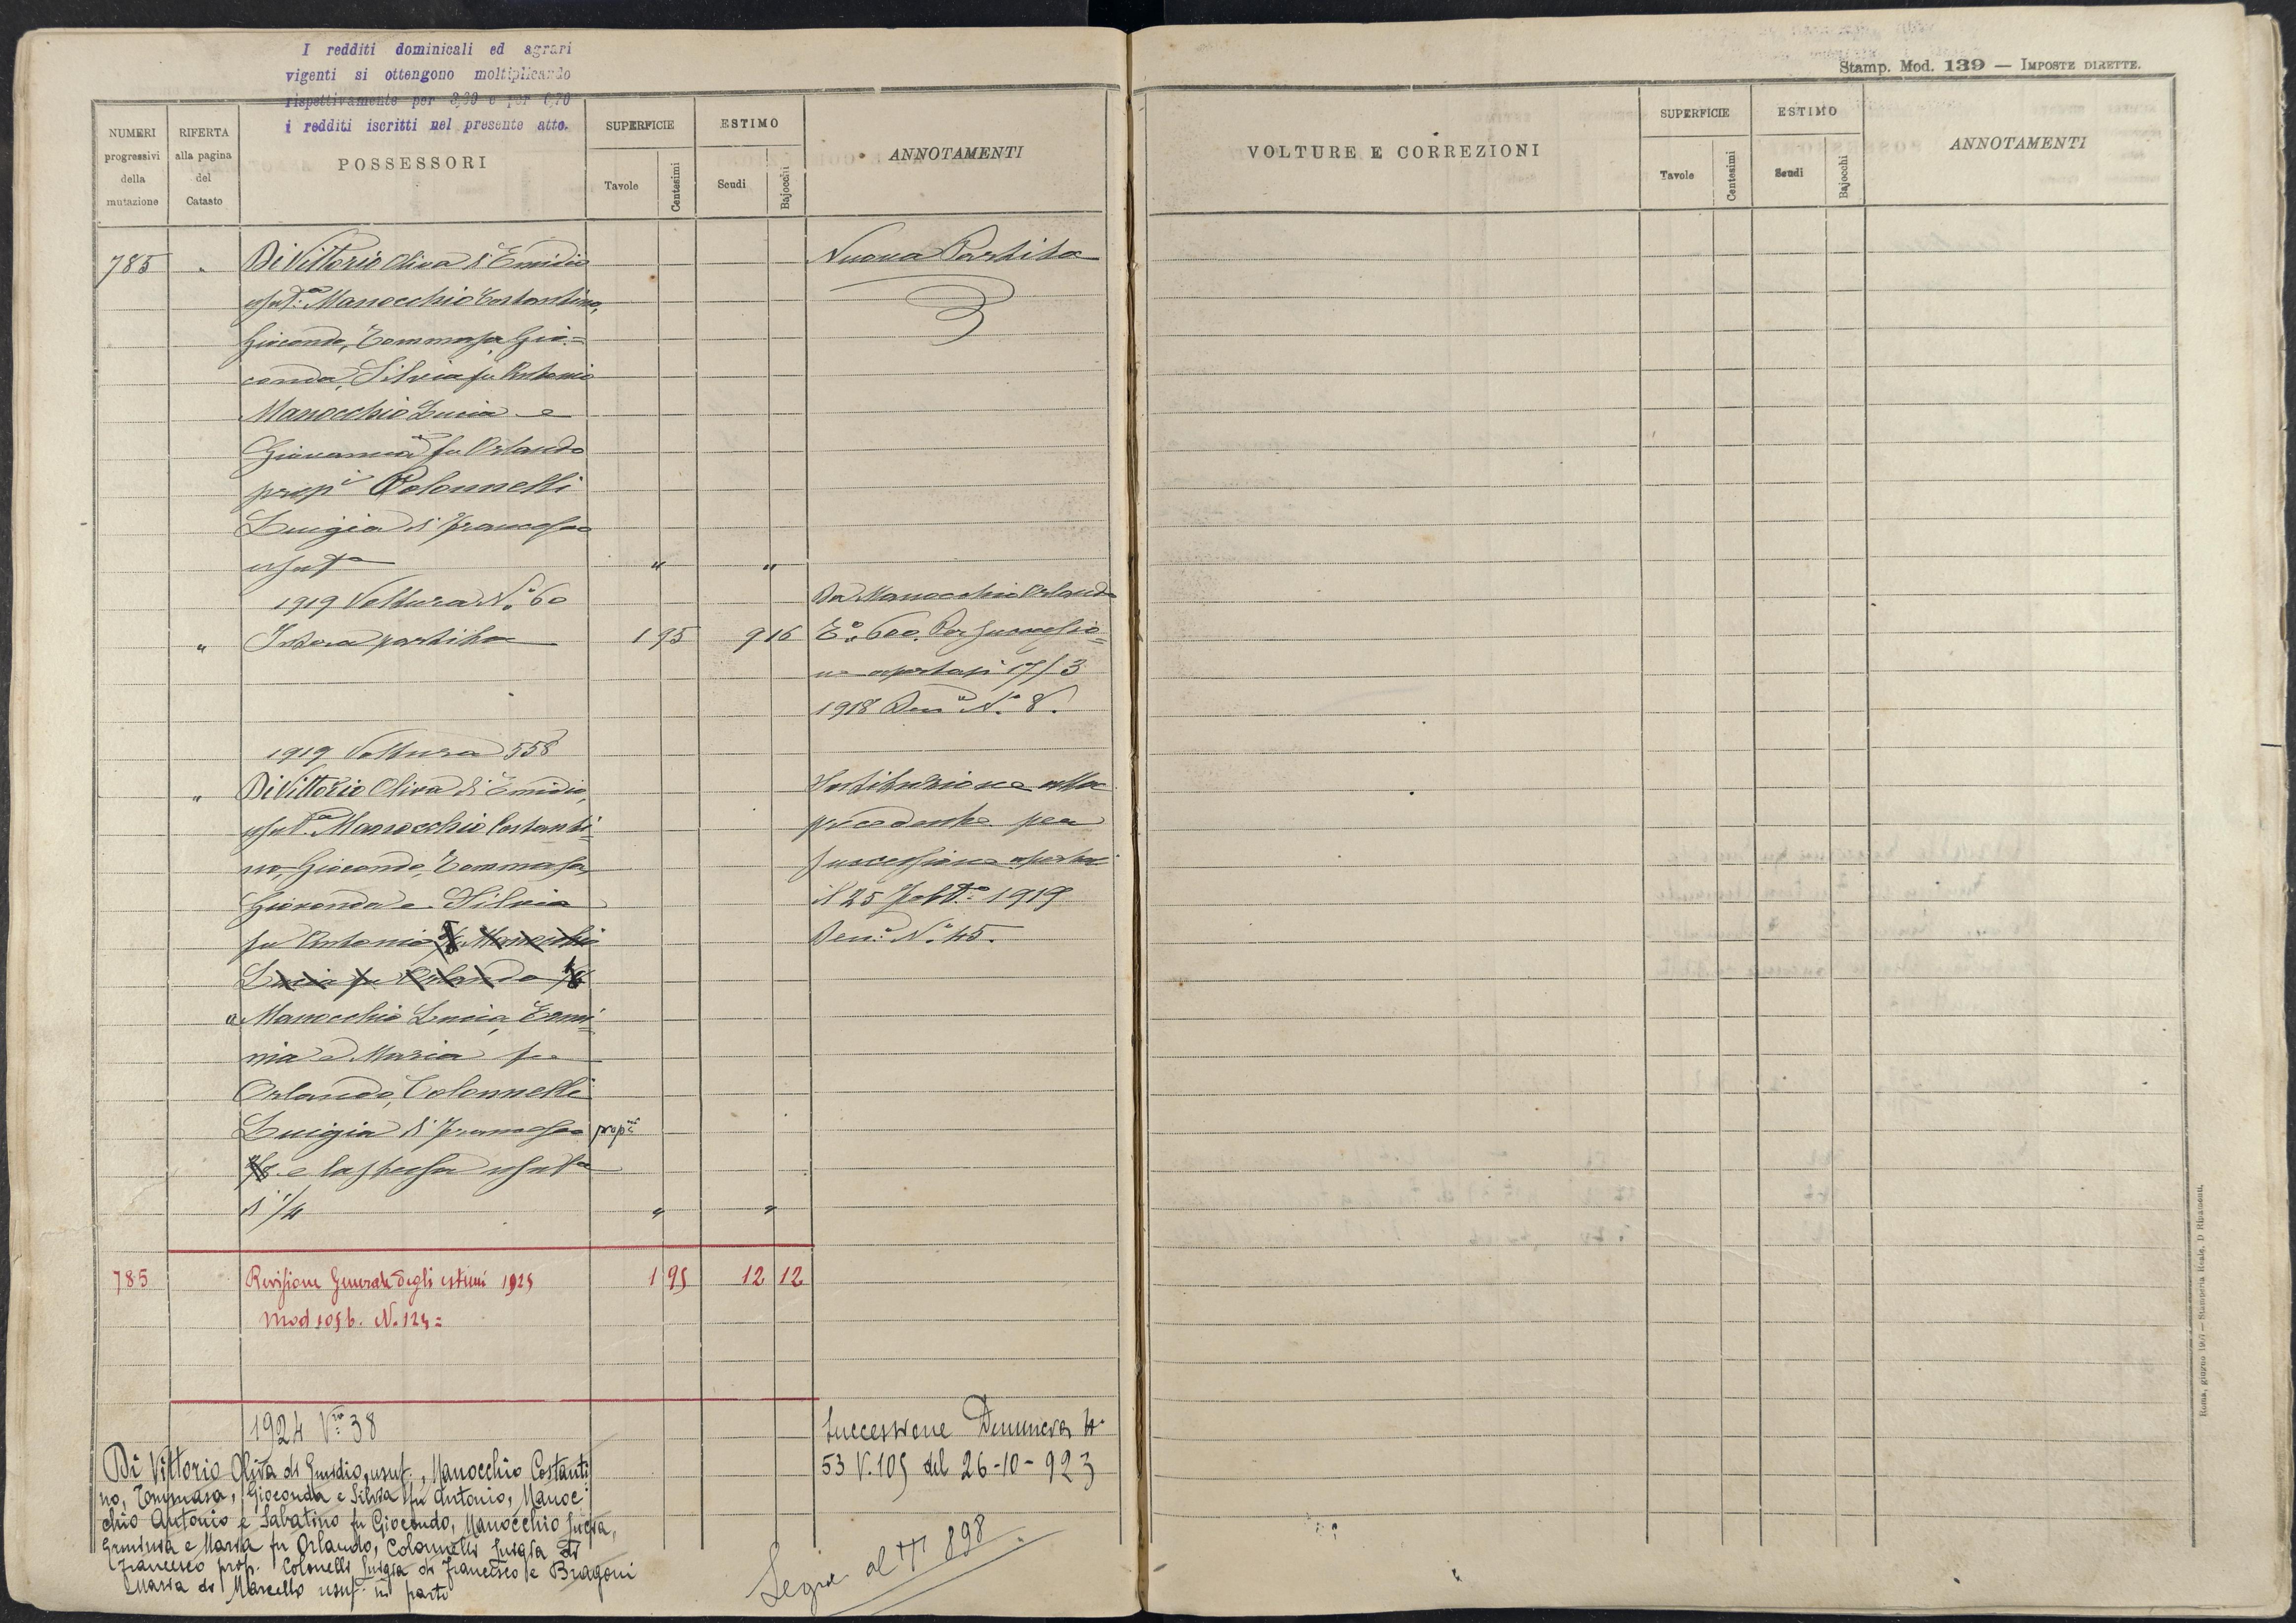 I redditi dominicali ed agrari
vigenti si ottengono moltiplicando
rispettivamente per 3,39 e per 6,70
i redditi iscritti nel presente atto.
NUMERI
progressivi
della
mutazione
RIFERTA
alla pagina
del
Catasto
POSSESSORI
SUPERFICIE
Tavole
Centesimi
ESTIMO
Scudi
Bajocchi
ANNOTAMENTI
785 " Di Vittorio Oliva di Emidio Nuova Partita
usuf.a Manocchio Costantino,
Giocondo, Tommasa Gio=
conda, Silvia fu Antonio
Manocchio Lucia e
Giovannia fu Orlando
prop.i Colonnelli
Luigia di Francesco
usuf.a " "
1919 Voltura N.o 60 Da Manocchio Orlando
" Intera partita 1 95 9 16 T.o 600. Per successio=
ne apertasi 17/3
1918 Den.a N.o 8.
1919 Voltura 558
" Di Vittorio Oliva di Emidio, Sostituzione alla
usuf.a Manocchio Costanti= precedente per
no, Giocondo, Tommasa, successione aperta
Gioconda e Silvia il 25 Febb.o 1919
fu Antonio Manocchio Den.a N.o 45.
Lucia fu Orlando
" Manocchio Lucia, Ermi=
nia e Maria fu
Orlando, Colonnelli
Luigia di Francesco prop.ri
e la stessa usuf.a
di 1/4 " "
785 Revisione Generale degli estimi 1925 1 95 12 12
Mod 105 b. N. 124=
1924 V.ra 38 Successione Denuncia N.
Di Vittorio Oliva di Emidio, usuf., Manocchio Costanti= 53 V. 105 del 26-10-923
no, Tommasa, Gioconda e Silvia fu Antonio, Manoc=
chio Antonio e Sabatino fu Giocondo, Manocchio Lucia,
Erminia e Maria fu Orlando, Colonnelli Luigia di
Francesco prop. Colonelli Luigia di Francesco e Bragoni
Maria di Marcello usuf. in parte
Segue al T.o 898
Stamp. Mod. 139 — IMPOSTE DIRETTE.
VOLTURE E CORREZIONI
SUPERFICIE
Tavole
Centesimi
ESTIMO
Scudi
Bajocchi
ANNOTAMENTI